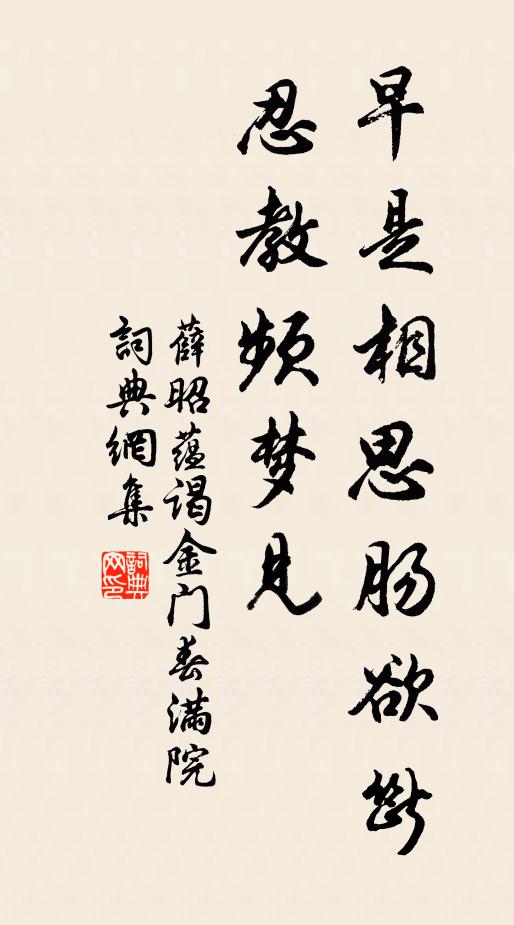 早是相思肠欲斷
忍教频梦見
薛昭蕴谒金门春滿院
詞典網集
詞典网印